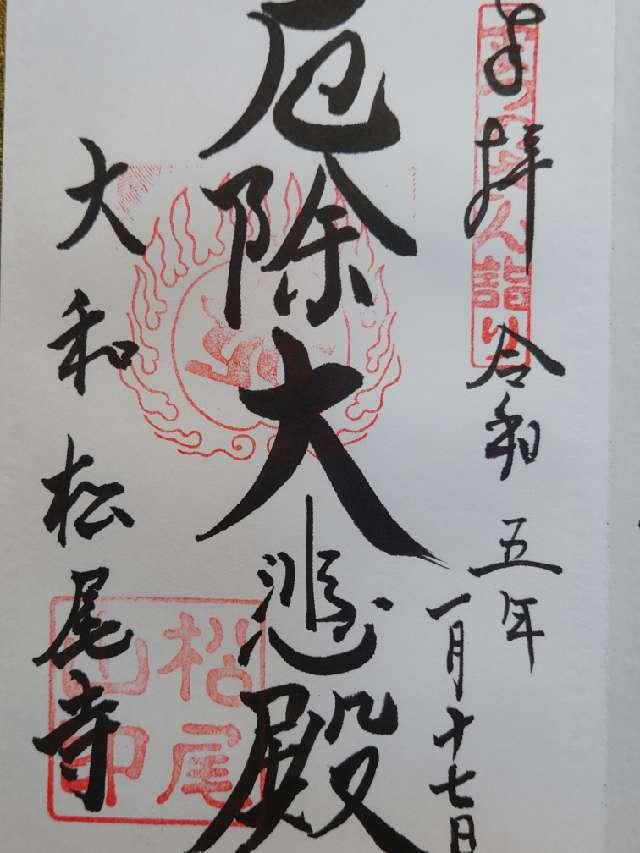 奉拝
令和五年
一月十七日
厄除大悲殿
大和松尾寺
松尾山印